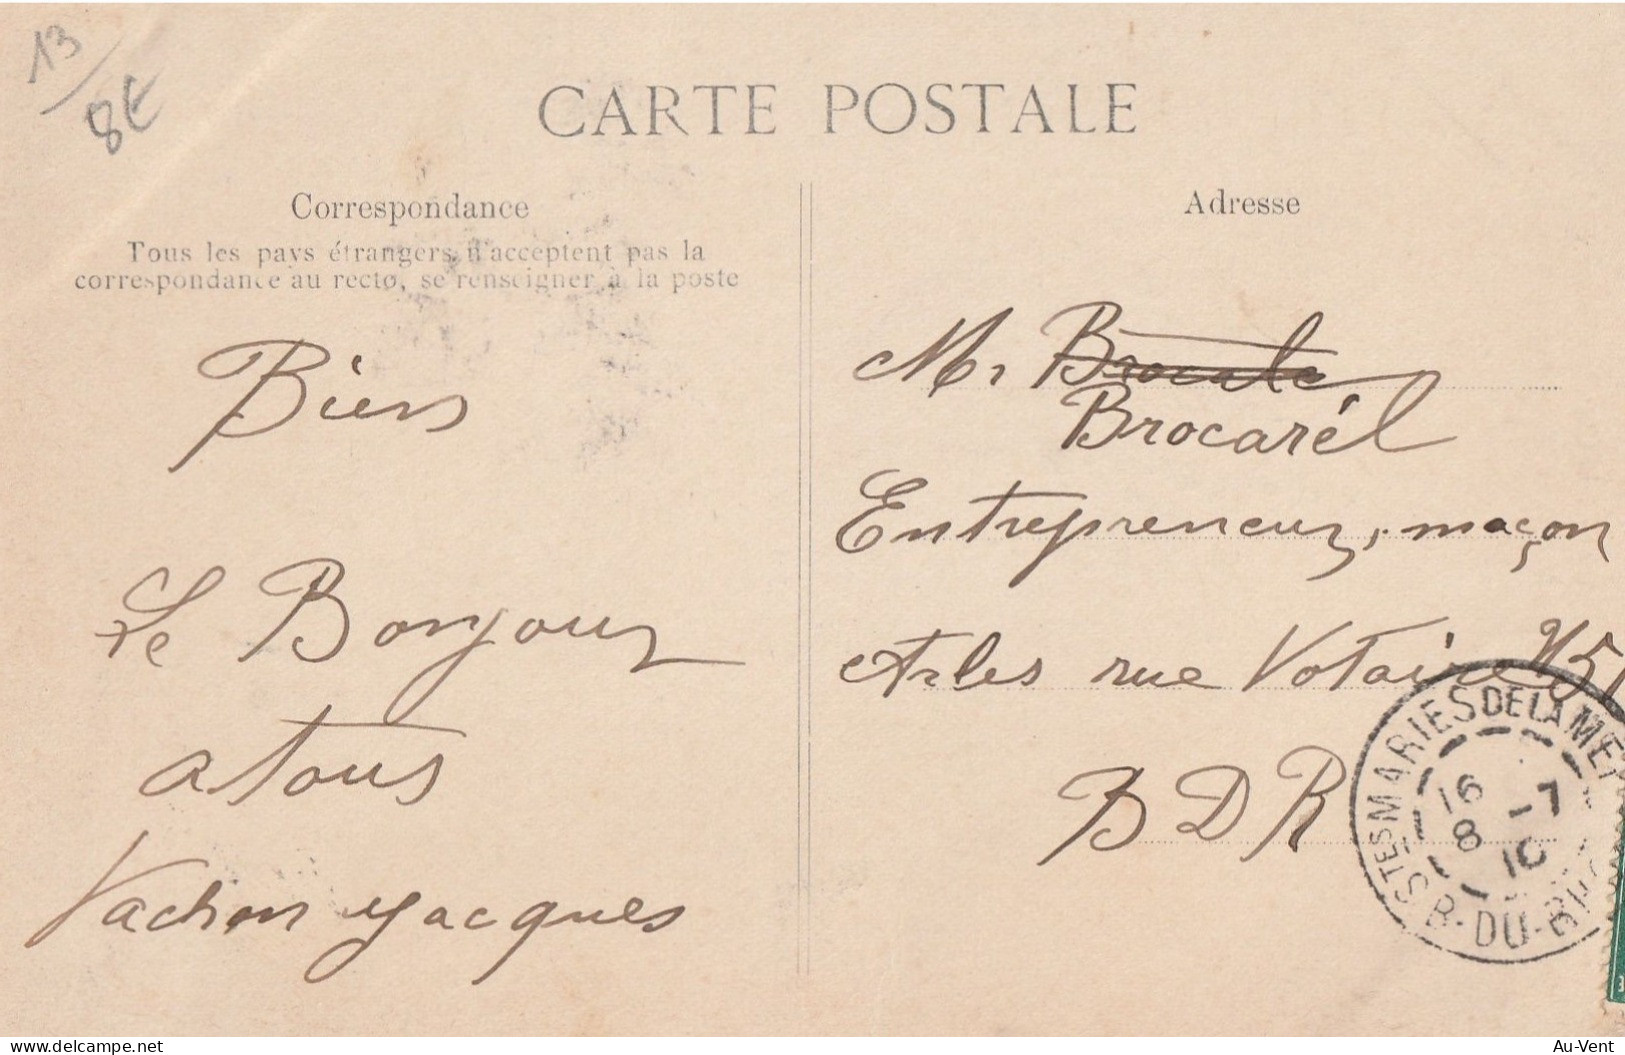 13
8€
CARTE POSTALE
Correspondance
Tous les pays étrangers n'acceptent pas la
correspondance au recto, se renseigner à la poste
Biens
Le Bonjour
a tous
Vachon Jacques
Adresse
Mr Brocale
Brocarél
Entrepreneur, maçon
Arles rue Votaire 951
BDR
STES MARIES DE LA MER
16 -7
8 10
B-DU-RH
Au-Vent
www.delcampe.net